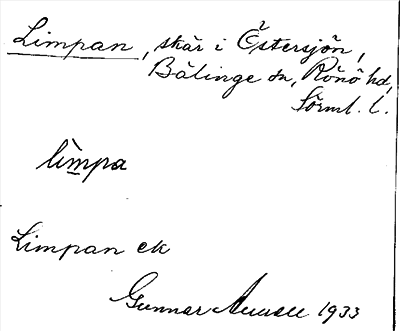 Limpan, skär i Östersjön,
Bälinge sn, Rönö hd,
Sörml. l.
lìm̲pa
Limpan ek
Gunnar 1933